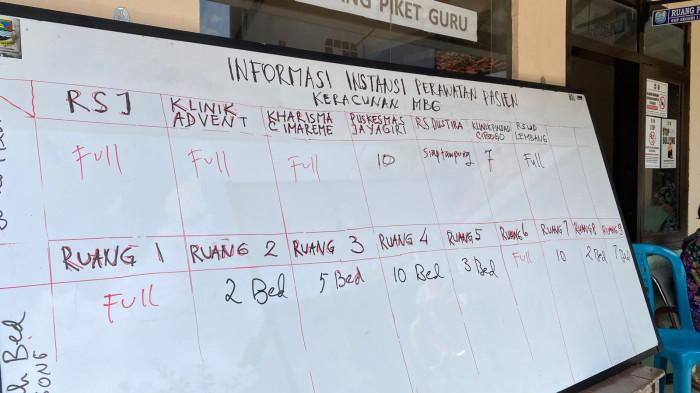 PIKET GURU
RUANG
INFORMASI INSTANSI PERAWATAN PASIEN
KERACUNAN MBG
RSJ
KLINIK ADVENT
KHARISMA CIMAREME
PUSKESMAS JAYAGIRI
RS DUSTIRA
RSUD LEMBANG
Full Full Full 10 7 Full
RUANG 1 RUANG 2 RUANG 3 RUANG 4 RUANG 5 RUANG 6 RUANG 7 RUANG 8 RUANG 9
Full 2 Bed 5 Bed 10 Bed 3 Bed Full 10 2 Bed 7 Bed
Bed